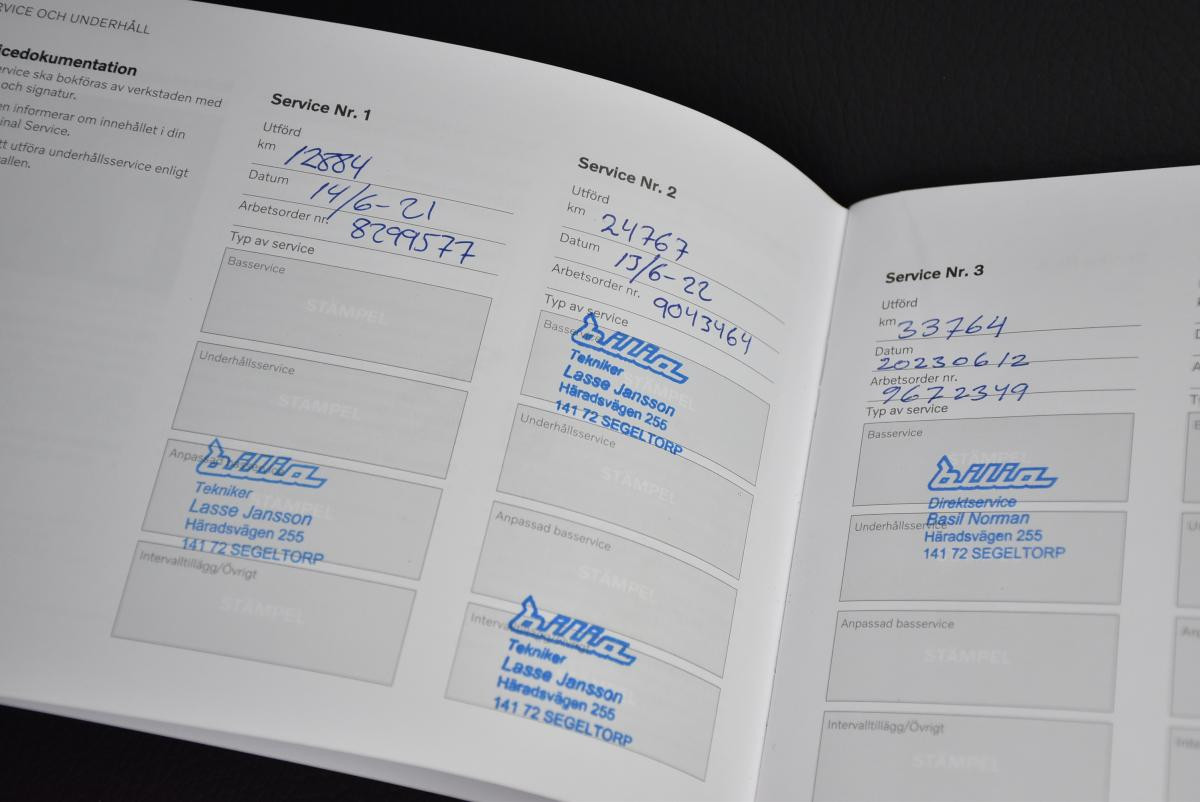 RVICE OCH UNDERHÅLL
icedokumentation
ervice ska bokföras av verkstaden med
och signatur.
en informerar om innehållet i din
inal Service.
tt utföra underhållsservice enligt
allen.
Service Nr. 1
Utförd
km 12884
Datum 14/6-21
Arbetsorder nr. 8299577
Typ av service
Basservice
STÄMPEL
Underhållsservice
STÄMPEL
Anpassad basservice
STÄMPEL
bilia
Tekniker
Lasse Jansson
Häradsvägen 255
141 72 SEGELTORP
Intervalltillägg/Övrigt
STÄMPEL
Service Nr. 2
Utförd
km 24767
Datum 13/6-22
Arbetsorder nr. 9043464
Typ av service
Basservice
STÄMPEL
bilia
Tekniker
Lasse Jansson
Häradsvägen 255
141 72 SEGELTORP
Underhållsservice
STÄMPEL
Anpassad basservice
STÄMPEL
bilia
Tekniker
Lasse Jansson
Häradsvägen 255
141 72 SEGELTORP
Service Nr. 3
Utförd
km 33764
Datum 20230612
Arbetsorder nr. 9672349
Typ av service
Basservice
STÄMPEL
bilia
Direktservice
Basil Norman
Häradsvägen 255
141 72 SEGELTORP
Underhållsservice
Anpassad basservice
STÄMPEL
Intervalltillägg/Övrigt
STÄMPEL